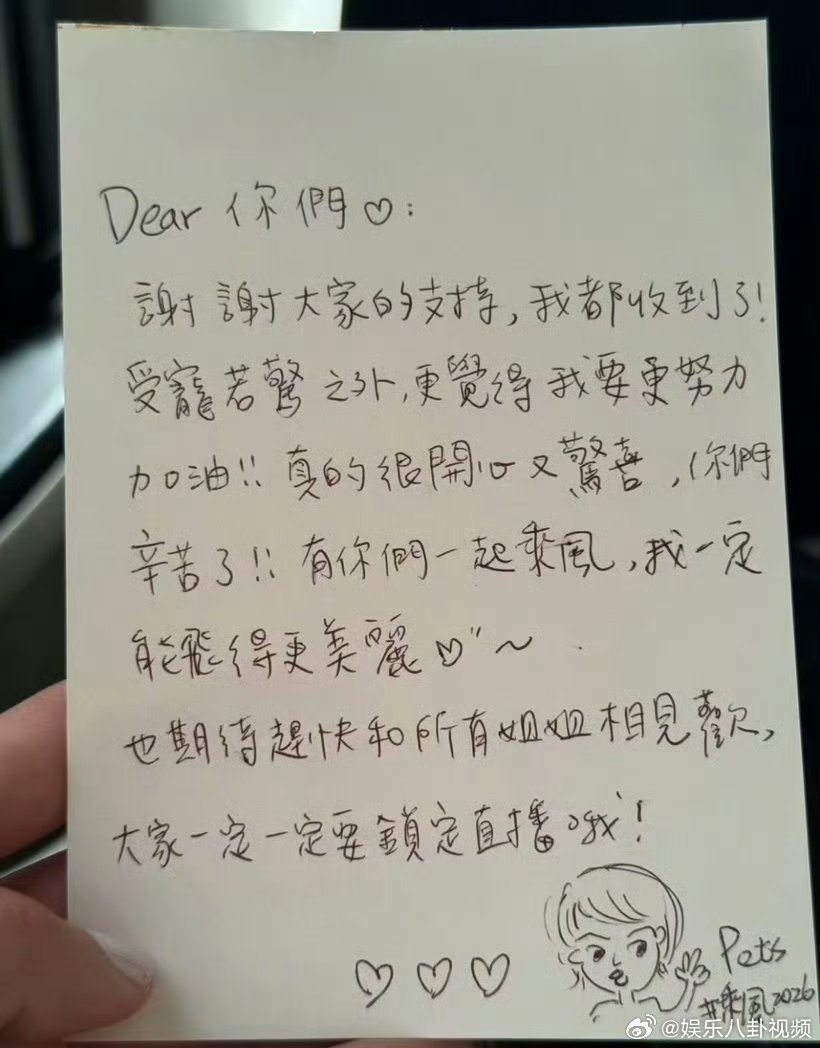 Dear 你們♡:
謝謝大家的支持,我都收到了!
受寵若驚之外,更覺得我要更努力
加油!! 真的很開心又驚喜,你們
辛苦了!! 有你們一起乘風,我一定
能飛得更美麗♡"~
也期待趕快和所有姐姐相見歡,
大家一定一定要鎖定直播哦!
♡♡♡
Pets
#乘風2026
@娱乐八卦视频